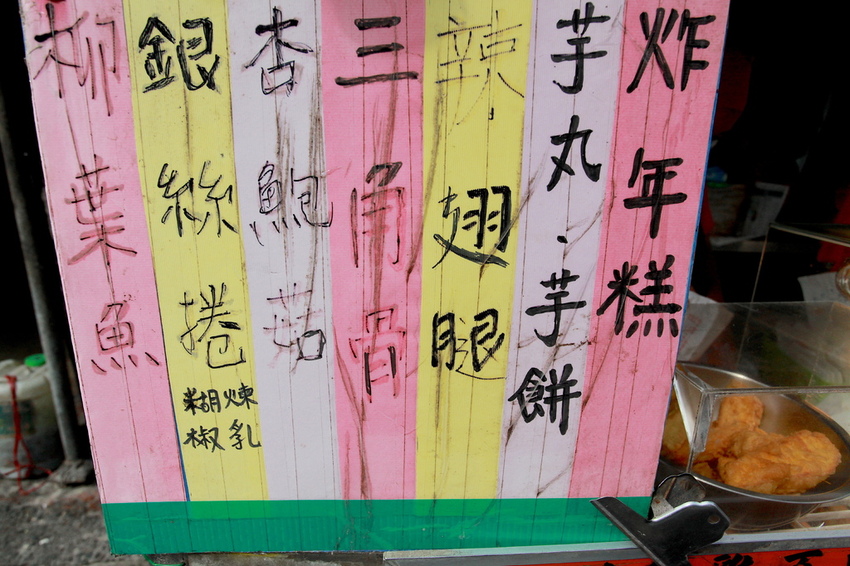 炸年糕
芋丸、芋餅
辣翅腿
三角骨
杏鮑菇
銀絲捲
煉乳
糊椒
柳葉魚